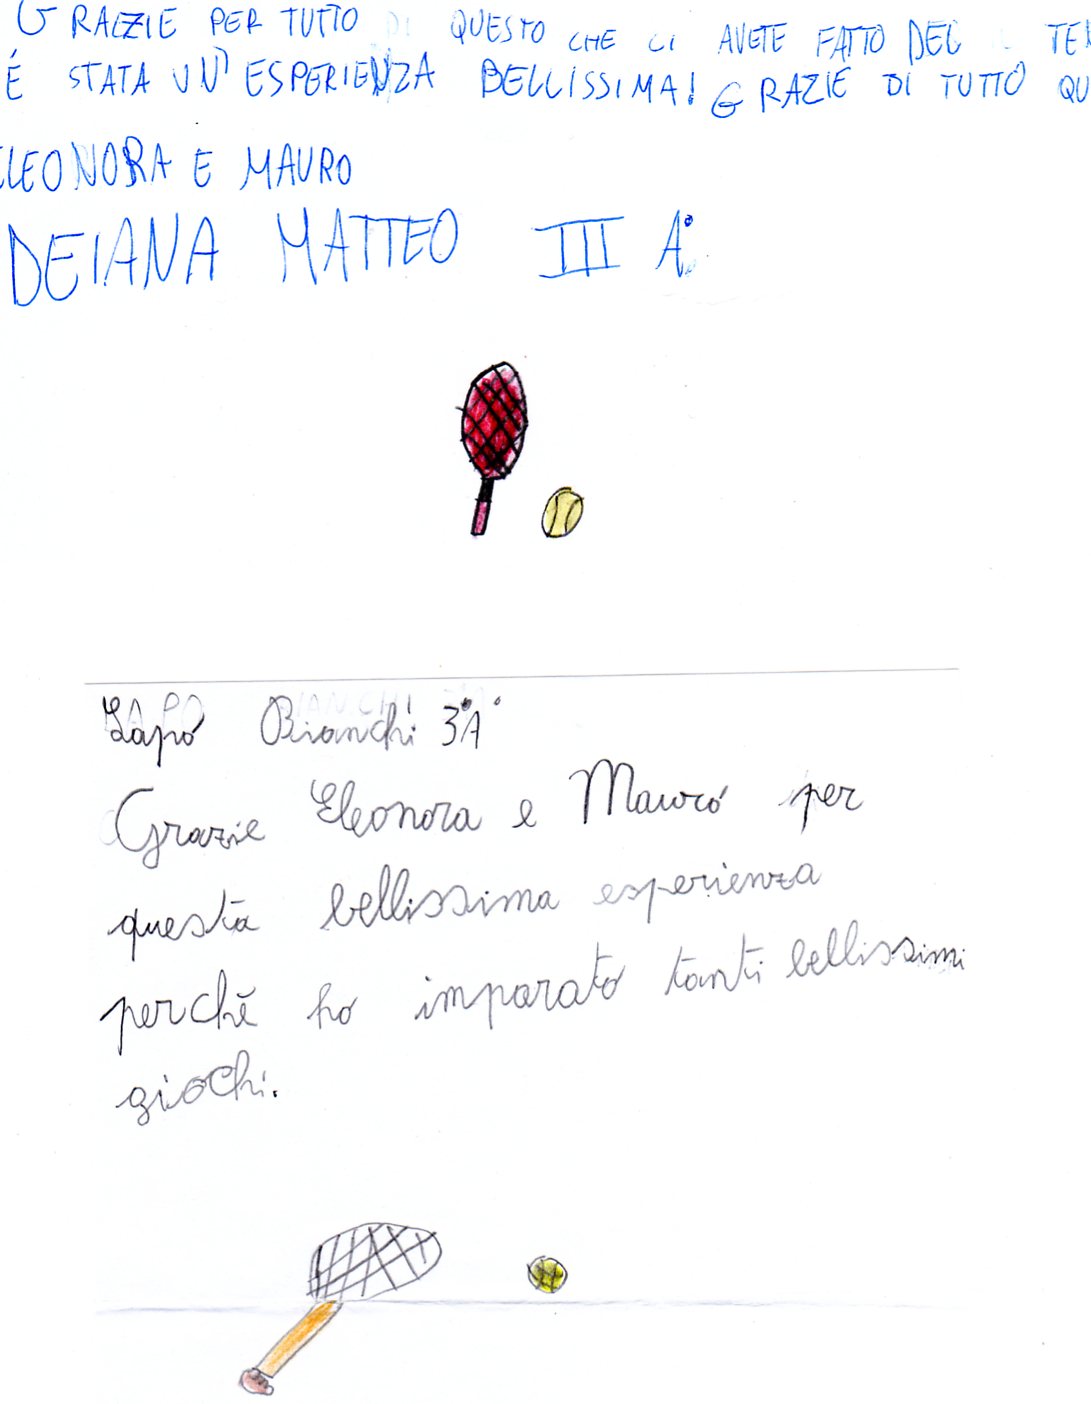 GRAZIE PER TUTTO QUESTO CHE CI AVETE FATTO DEL TEN
É STATA UN'ESPERIENZA BELLISSIMA! GRAZIE DI TUTTO QU
ELEONORA E MAURO
DEIANA MATTEO III A°
Lapo Bianchi 3°A°
Grazie Eleonora e Mauro per
questa bellissima esperienza
perchě ho imparato tanti bellissimi
giochi.